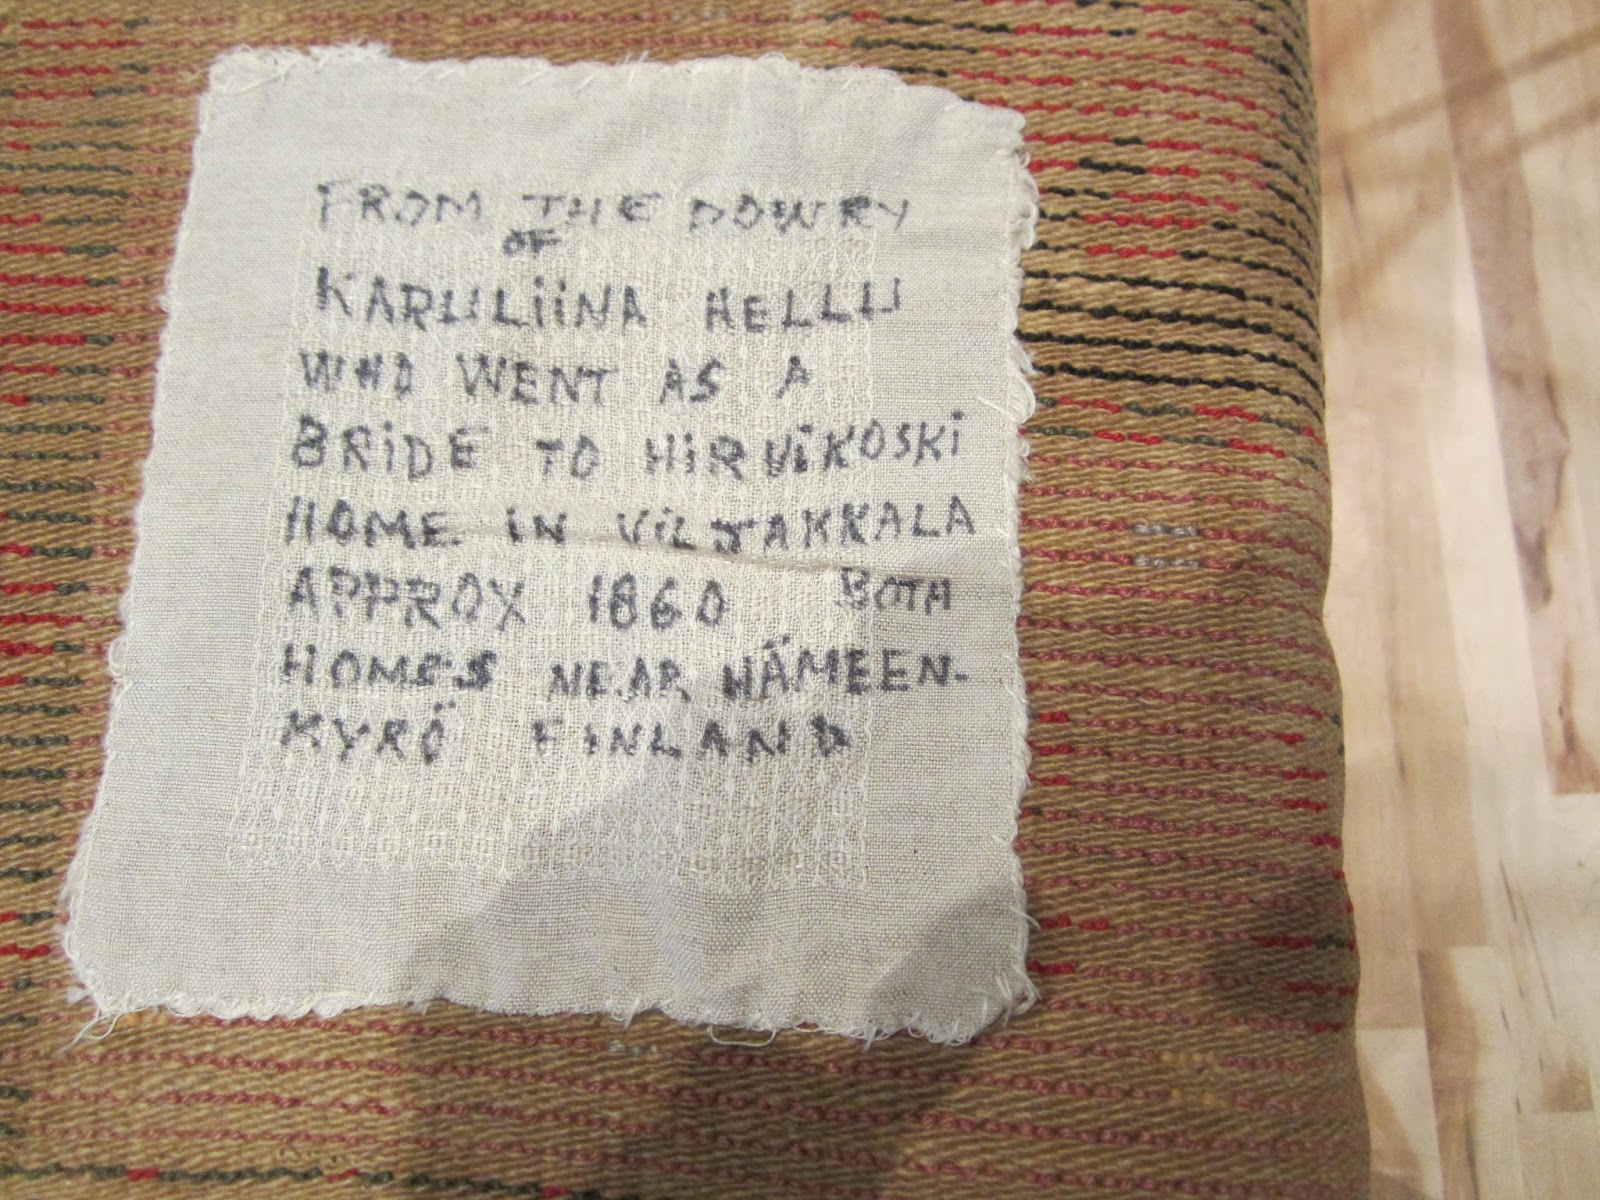 FROM THE DOWRY
OF
KARULIINA HELLU
WHO WENT AS A
BRiDE TO HiRViKOSKi
HOME IN ViLJAKKALA
APPROX 1860 BOTH
HOMES NEAR HÄMEEN-
KYRÖ FINLAND